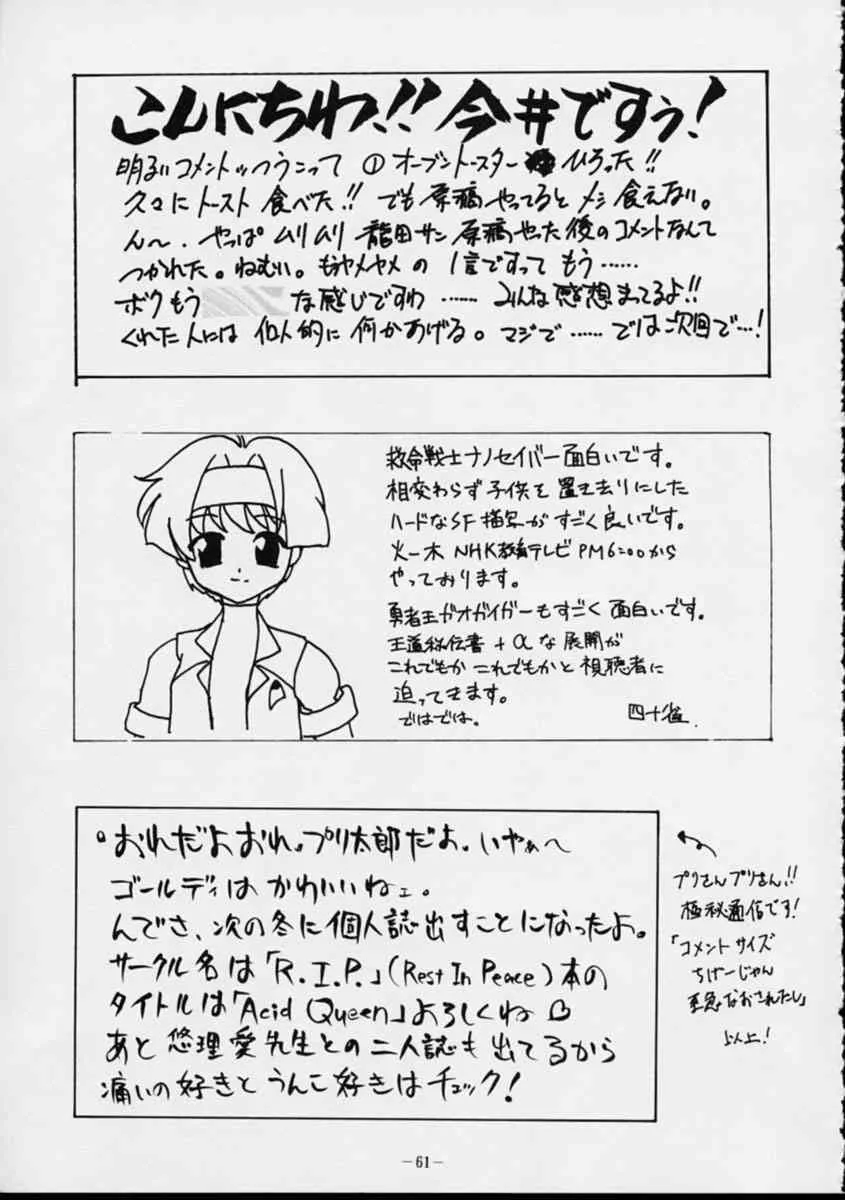 こんにちわ!! 今井ですぅ!
明るいコメントっつうこって ① オーブントースター ひろった!!
久々に トースト 食べた!! でも 原稿 やってると メシ 食えない。
ん〜. やっぱ ムリムリ 龍田サン 原稿やった後のコメントなんて
つかれた。ねむい。もうヤメヤメ の 1言ですって もう……
ボクもう な感じですわ …… みんな感想まってるよ!!
くれた人には 個人的に 何かあげる。 マジで …… では次回で…!
救命戦士ナノセイバー面白いです。
相変わらず子供を置き去りにした
ハードなSF描写がすごく良いです。
火〜木 NHK教育テレビ PM6:00から
やっております。
勇者王ガオガイガーもすごく面白いです。
王道秘伝書 + αな展開が
これでもか これでもかと視聴者に
迫ってきます。
ではでは。 四十雀.
おれだよおれ。プリ太郎だよ。いやぁ〜
ゴールディはかわいいねェ。
んでさ、次の冬に個人誌出すことになったよ。
サークル名は「R.I.P.」(Rest In Peace) 本の
タイトルは「Acid Queen」よろしくね♡
あと 悠理愛先生との二人誌も出てるから
痛いの好きと うんこ好きはチェック!
プリさんプリさん!!
極秘通信です!
「コメントサイズ
ちげーじゃん
至急なおされたし」
以上!
－61－